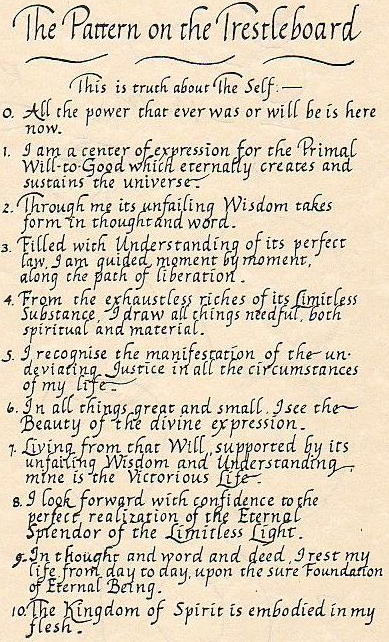 The Pattern on the Trestleboard
This is truth about The Self:—
0. All the power that ever was or will be is here
now.
1. I am a center of expression for the Primal
Will-to-Good which eternally creates and
sustains the universe.
2. Through me its unfailing Wisdom takes
form in thought and word.
3. Filled with Understanding of its perfect
law, I am guided, moment by moment,
along the path of liberation.
4. From the exhaustless riches of its Limitless
Substance, I draw all things needful, both
spiritual and material.
5. I recognise the manifestation of the un-
deviating Justice in all the circumstances
of my life.
6. In all things, great and small, I see the
Beauty of the divine expression.
7. Living from that Will, supported by its
unfailing Wisdom and Understanding,
mine is the Victorious Life.
8. I look forward with confidence to the
perfect realization of the Eternal
Splendor of the Limitless Light.
9. In thought and word and deed, I rest my
life, from day to day, upon the sure Foundation
of Eternal Being.
10. The Kingdom of Spirit is embodied in my
flesh.